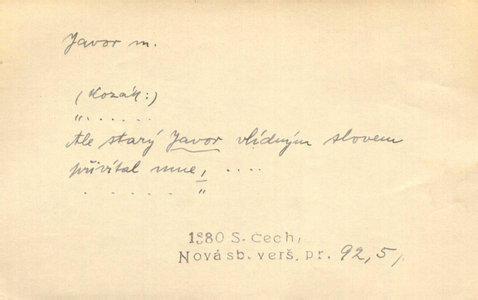 Javor m.
(Kozák:)
„. . . . . .
Ale starý Javor vlídným slovem
přivítal mne, . . . .
. . . . . . . "
1880 S. Čech,
Nová sb. verš. pr. 92,5/.